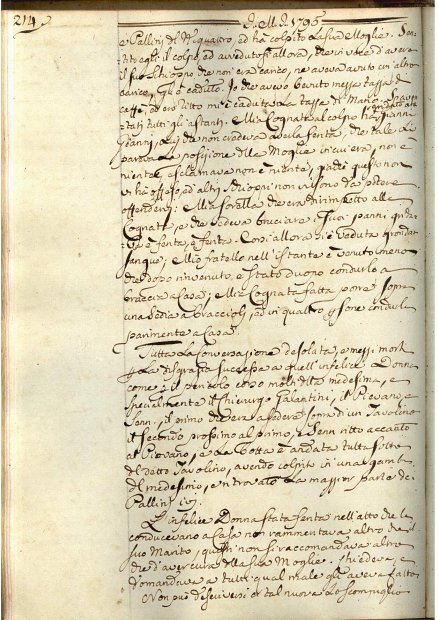 214
A. M. D. 1796
e Pallini di N: quattro, ed ha colpito la sua Moglie. Sen-
tito egli il colpo, ed avvedutosi allora, che in vece d'avere
il suo Schioppo che non era carico, ne aveva avuto un'altro
carico, gli è caduto. Io che avevo bevuto mezza tazza di
caffe, ad un tratto mi è caduta la tazza di mano.
tati tutti gli astanti. Mia Cognata al colpo ha
Gianni, che non credeva averla ferita, che tale
pareva la posizione della Moglie in cui era, non è
niente, esclamava non è niente, questa non
vi ha offeso, ed altri Schioppi non vi sono da potere
offendervi: Mia Sorella che era dirimpetto alla
Cognata, e che vedeva bruciare i suoi panni, grida-
va è ferita, è ferita. Così allora si è veduta grondar
sangue, e Mio fratello nell'istante è venuto meno
che dopo rinvenuto, è stato d'uopo condurlo a
braccia a Casa, e Mia Cognata fatta porre sopra
una Sedia a braccioli, ed in quattro persone condurla
parimente a Casa.
Tutta la Conversazione desolata, e mezzi morti
per la disgrazia successa a quell'infelice Donna
come per il pericolo corso molti della medesima, e
specialmente il Chirurgo Galantini, il Piovano, e
Senn:, il primo che era a sedere sopra di un Tavolino
il secondo prossimo al primo, e Senn: ritto accanto
al Piovano, e la botta è andata tutta sotto
del detto Tavolino, avendo colpito in una gamba
del medesimo, e trovato la maggior parte de
Pallini ivi.
L'infelice Donna stata ferita nell'atto che la
conducevano a Casa non rammentava altro che il
suo Marito, questi non si raccomandava altro
che d'aver cura della sua Moglie. Chiedeva, e
domandava a tutti qual male gli aveva fatto.
Non può descriversi di tal nuova lo scompiglio